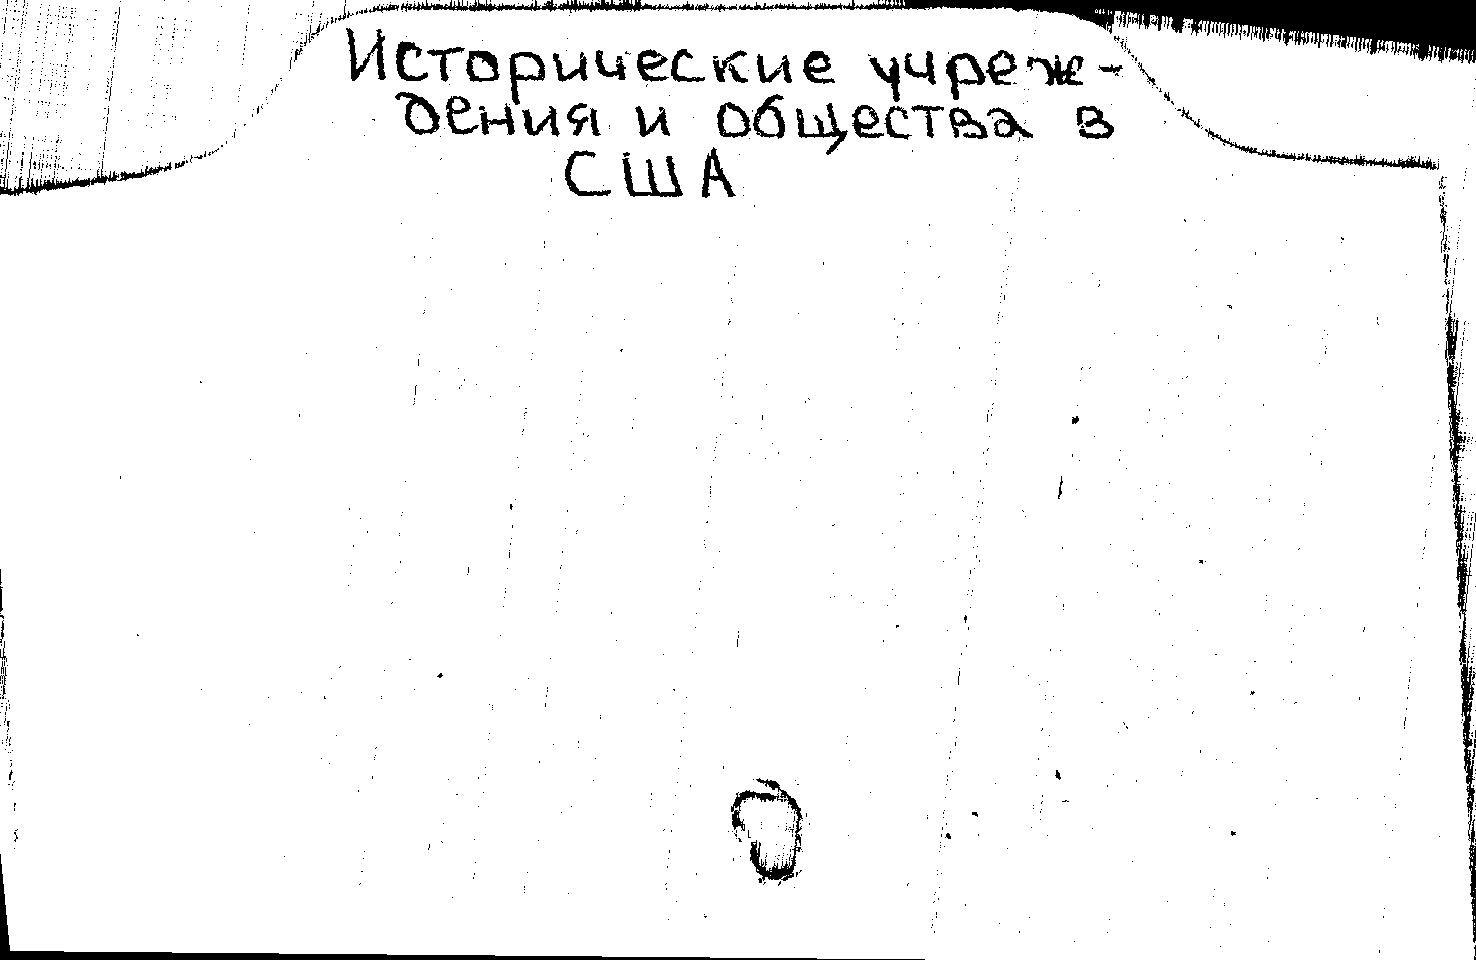 Исторические учреж-
дения и общества в
США